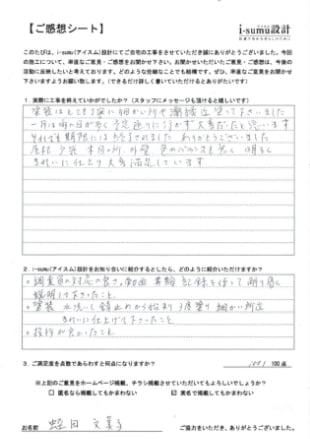 【ご感想シート】
i-sumu設計
このたびは、i-sumu(アイスム)設計にてご自宅の工事をさせていただき誠にありがとうございました。今回
の施工について、率直なご意見・ご感想をお聞かせ下さい。お聞かせいただいたご意見・ご感想は、今後の
活動に反映したいと考えております。どのような些細なことでも結構です。ぜひ、率直なご意見をお聞かせ
下さいますようお願い致します。(できるだけ詳しく書いていただけるとありがたいです)
1. 実際に工事を終えていかがでしたか?(スタッフにメッセージも頂けると嬉しいです)
塗装はとても丁寧に細かい所や 塗って下さいました
一月は雨の日が多く予定通りに行かず大変だったと思います
それでも期限には終了されました ありがとうございました
屋根 外壁 色のバランスも良く 明るく
きれいに仕上り大満足しています
2. i-sumu(アイスム)設計をお知り合いに紹介するとしたら、どのように紹介いただけますか?
・調査員の対応の良さ。動画 記録を使って
説明して下さったこと
・塗装 水洗いし錆止めから始まり3度塗り 細かい所迄
きれいに仕上げて下さったこと
・ が良かったこと
3. ご満足度を点数であらわすと何点になりますか? 100点
※上記のご意見をホームページ掲載、チラシ掲載させていただいてもよろしいでしょうか?
□ 匿名なら掲載してもかまわない 実名で掲載してもかまわない
お名前
ご協力いただき、ありがとうございました。